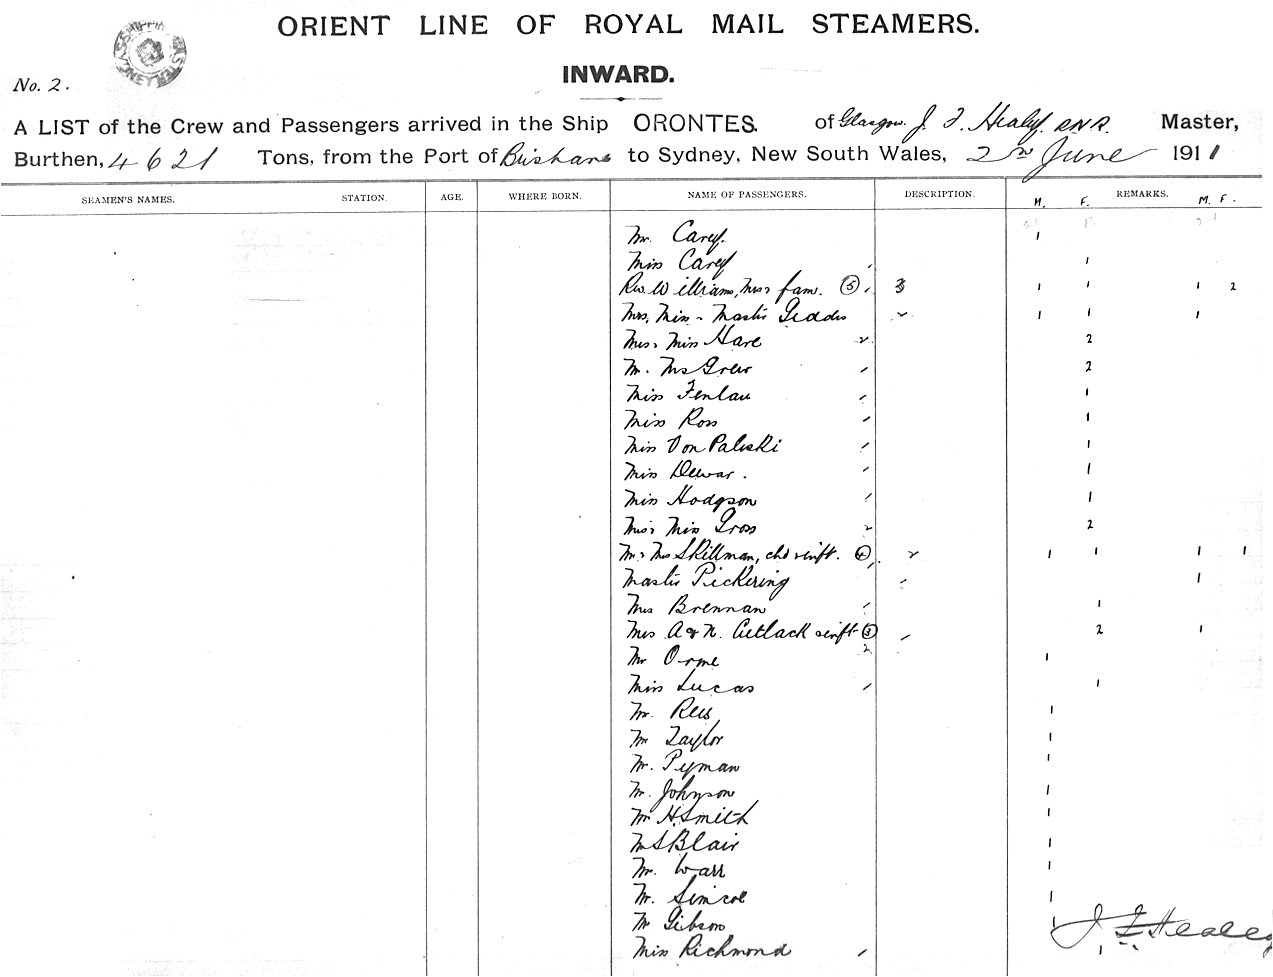 ORIENT LINE OF ROYAL MAIL STEAMERS.
No. 2.
INWARD.
A LIST of the Crew and Passengers arrived in the Ship ORONTES. of Glasgow. J. F. Healey. R.N.R. Master,
Burthen, 4621 Tons, from the Port of Brisbane to Sydney, New South Wales, 2nd June 1911
SEAMEN'S NAMES. STATION. AGE. WHERE BORN. NAME OF PASSENGERS. DESCRIPTION. M. F. REMARKS. M. F.
Mr. Carey. 1
Miss Carey 1
Rev. Williams, Mrs & fam. (5) 3 1 1 1 2
Mrs, Miss & Master Geddes 1 1 1
Mrs & Miss Hare 2 2
Mr. McGrew 2
Miss Fenlau 1
Miss Ross 1
Miss Von Paleski 1
Miss Dewar. 1
Miss Hodgson 1
Mrs & Miss Gross 2 2
Mr & Mrs Skillman, chd & inft. (4) 2 1 1 1 1
Master Pickering 1
Mrs Brennan 1
Mrs A & N. Cutlack & inft (3) 2 1
Mr Orme 1
Miss Lucas 1
Mr. Rees 1
Mr Taylor 1
Mr. Pyman 1
Mr. Johnson 1
Mr H. Smith 1
Mr S Blair 1
Mr. Warr 1
Mr. Simcoe 1
Mr Gibson 1 J F Healey
Miss Richmond 1